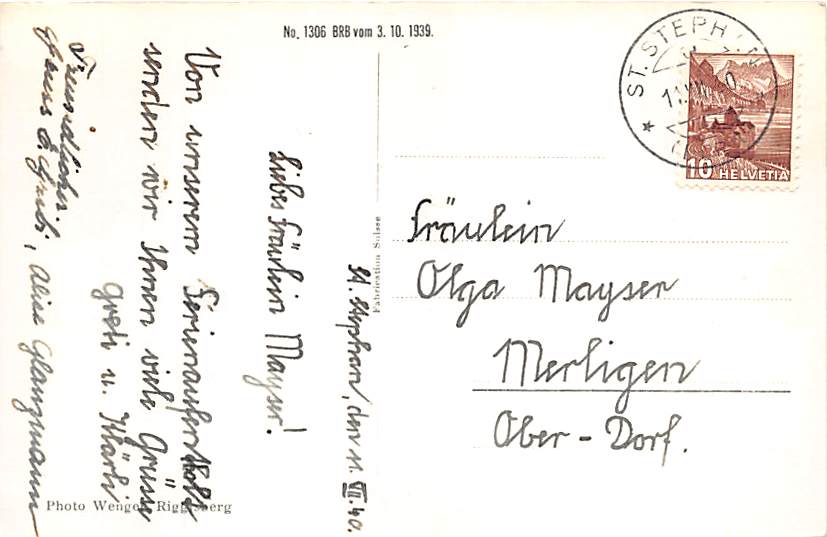 No. 1306 BRB vom 3. 10. 1939.
St. Stephan, den 11. VII. 40.
Liebes Fräulein Mayser!
Von unserem Ferienaufenthalt
senden wir Ihnen viele Grüsse
Greti u. Klärli
Freundliches
Alice Glanzmann
Fabrication Suisse
Photo Wenger Riggisberg
ST. STEPHAN
10 HELVETIA
Fräulein
Olga Mayser
Merligen
Ober-Dorf.